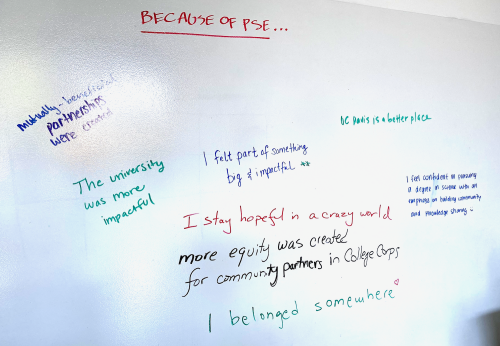 BECAUSE OF PSE...
mutually-beneficial
partnerships
were created
I felt part of something
big & impactful **
UC Davis is a better place
The university
was more
impactful
I feel confident in pursuing
a degree in science with an
emphasis on building community
and knowledge sharing :)
I stay hopeful in a crazy world
more equity was created
for community partners in College Corps
I belonged somewhere ♡